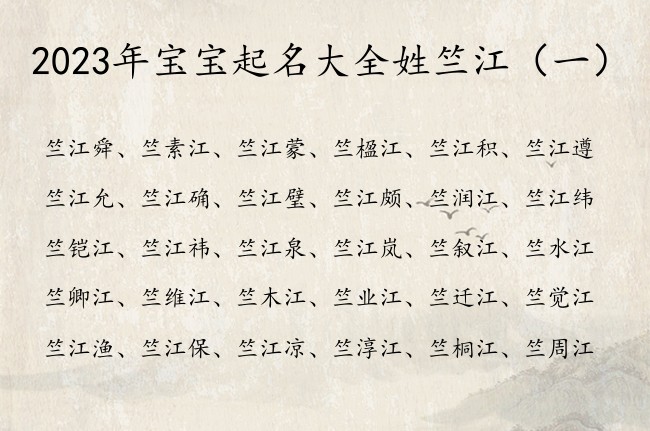 2023年宝宝起名大全姓竺江（一）
竺江舜、竺素江、竺江蒙、竺楹江、竺江积、竺江遵
竺江允、竺江确、竺江璧、竺江颇、竺润江、竺江纬
竺铠江、竺江祎、竺江泉、竺江岚、竺叙江、竺水江
竺卿江、竺维江、竺木江、竺业江、竺迁江、竺觉江
竺江渔、竺江保、竺江凉、竺淳江、竺桐江、竺周江